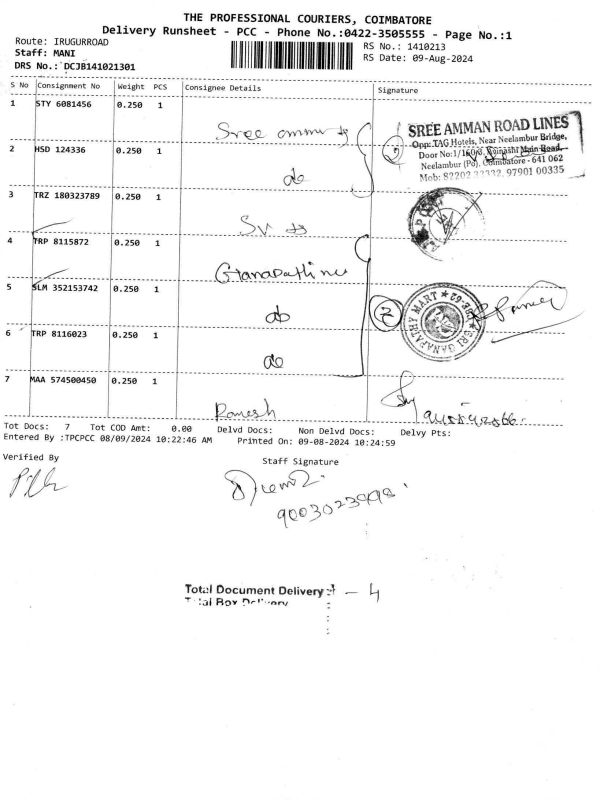 THE PROFESSIONAL COURIERS, COIMBATORE
Delivery Runsheet - PCC - Phone No.:0422-3505555 - Page No.:1
Route: IRUGURROAD
RS No.: 1410213
Staff: MANI
RS Date: 09-Aug-2024
DRS No.: DCJB141021301
S No Consignment No Weight PCS Consignee Details Signature
1 STY 6081456 0.250 1
Sree amman
SREE AMMAN ROAD LINES
Opp: TAG Hotels, Near Neelambur Bridge,
Door No:1/160/3, Avinashi Main Road,
Neelambur (Po), Coimbatore - 641 062
Mob: 82202 32332, 97901 00335
2 HSD 124336 0.250 1
do
3 TRZ 180323789 0.250 1
SV
4 TRP 8115872 0.250 1
5 SLM 352153742 0.250 1
do
SRI GANAPATHY MART
6 TRP 8116023 0.250 1
do
7 MAA 574500450 0.250 1
Ramesh
Tot Docs: 7 Tot COD Amt: 0.00 Delvd Docs: Non Delvd Docs: Delvy Pts:
Entered By :TPCPCC 08/09/2024 10:22:46 AM Printed On: 09-08-2024 10:24:59
Verified By
Staff Signature
9003023998.
Total Document Delivery : - 4
Total Box Delivery